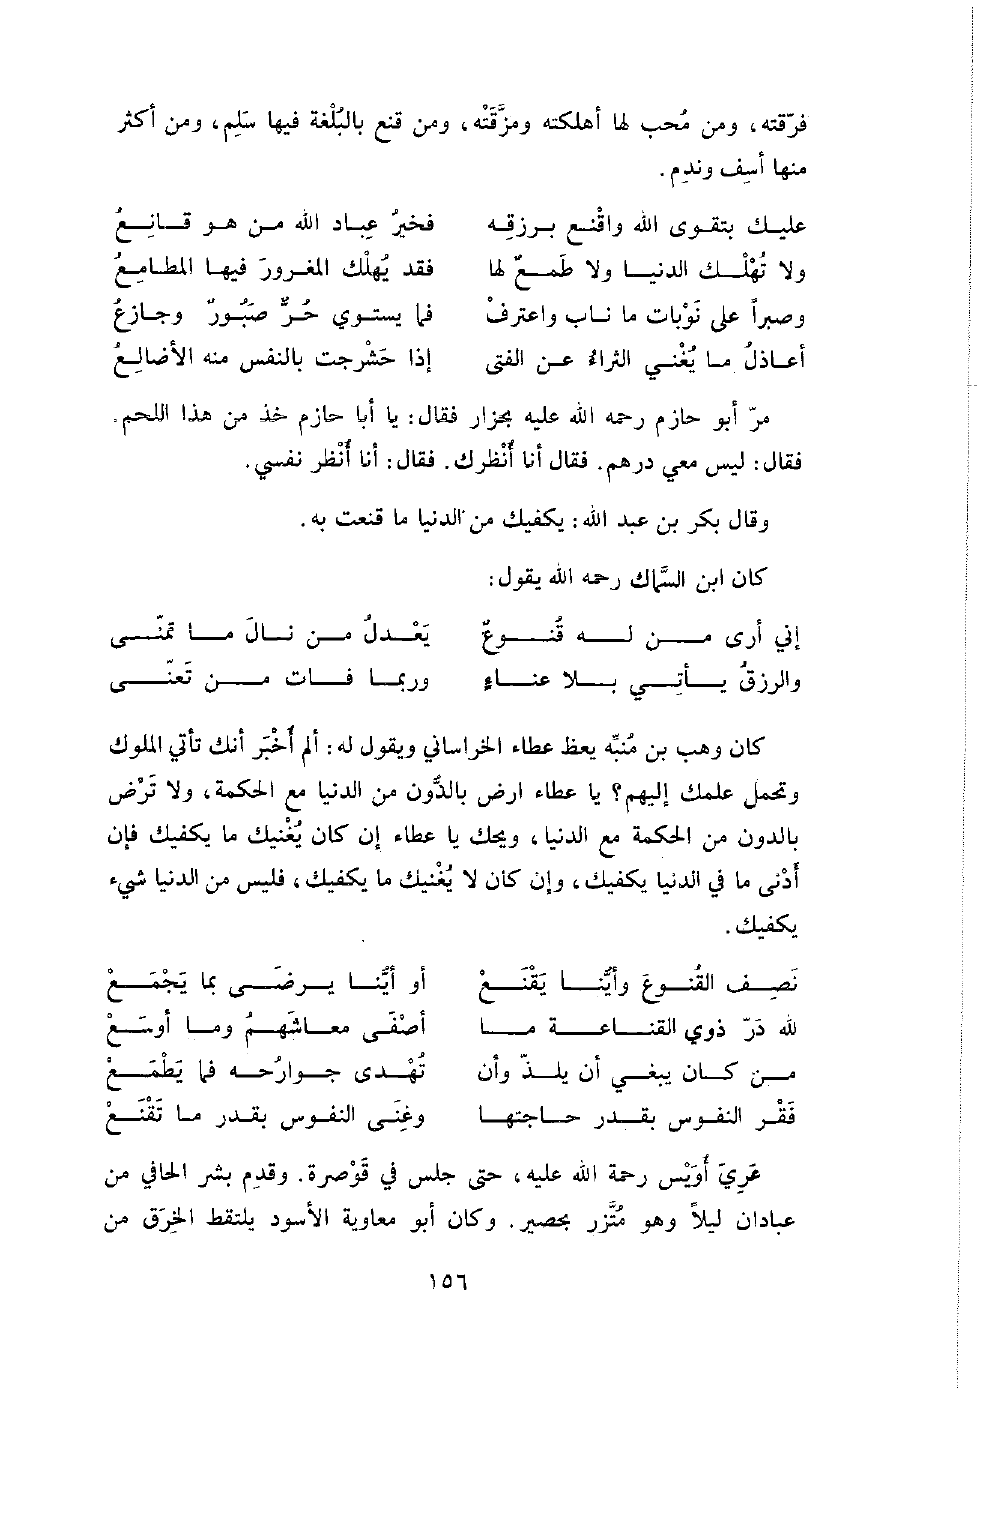 فرّقته، ومن مُحب لها أهلكته ومزَّقَتْه، ومن قنع بالبُلْغة فيها سَلِم، ومن أكثر
منها أسِف وندِم.
عليك بتقوى الله واقْنع برزقه فخيرُ عباد الله من هو قانعُ
ولا تُهْلك الدنيا ولا طَمعٌ لها فقد يُهلْك المغرورَ فيها المطامعُ
وصبراً على نَوْبات ما ناب واعترفْ فما يستوي حُرٌّ صَبُورٌ وجازعُ
أعاذلُ ما يُغْني الثراءُ عن الفتى إذا حَشْرجت بالنفس منه الأضالعُ
مرّ أبو حازم رحمه الله عليه بجزار فقال: يا أبا حازم خذ من هذا اللحم.
فقال: ليس معي درهم. فقال أنا أُنْظرك. فقال: أنا أُنْظر نفسي.
وقال بكر بن عبد الله: يكفيك من الدنيا ما قنعت به.
كان ابن السَّماك رحمه الله يقول:
إني أرى من له قُنوعٌ يَعْدلُ من نالَ ما تمنّى
والرزقُ يأتي بلا عناءٍ وربما فات من تَعنّى
كان وهب بن مُنبِّه يعظ عطاء الخراساني ويقول له: ألم أُخْبَر أنك تأتي الملوك
وتحمل علمك إليهم؟ يا عطاء ارض بالدُّون من الدنيا مع الحكمة، ولا تَرْض
بالدون من الحكمة مع الدنيا، ويحك يا عطاء إن كان يُغْنيك ما يكفيك فإن
أدْنى ما في الدنيا يكفيك، وإن كان لا يُغْنيك ما يكفيك، فليس من الدنيا شيء
يكفيك.
نَصِف القُنوعَ وأيُّنا يَقْنَعْ أو أيُّنا يرضَى بما يَجْمَعْ
لله دَرّ ذوي القناعة ما أصْفَى معاشَهمُ وما أوسَعْ
من كان يبغي أن يلذّ وأن تُهْدى جوارُحه فما يَطْمَعْ
فَقْر النفوس بقدر حاجتها وغِنَى النفوس بقدر ما تَقْنَعْ
عَرِيَ أوَيْس رحمة الله عليه، حتى جلس في قَوْصرة. وقدم بشر الحافي من
عبادان ليلاً وهو مُتَّزر بحصير. وكان أبو معاوية الأسود يلتقط الخِرَق من
١٥٦